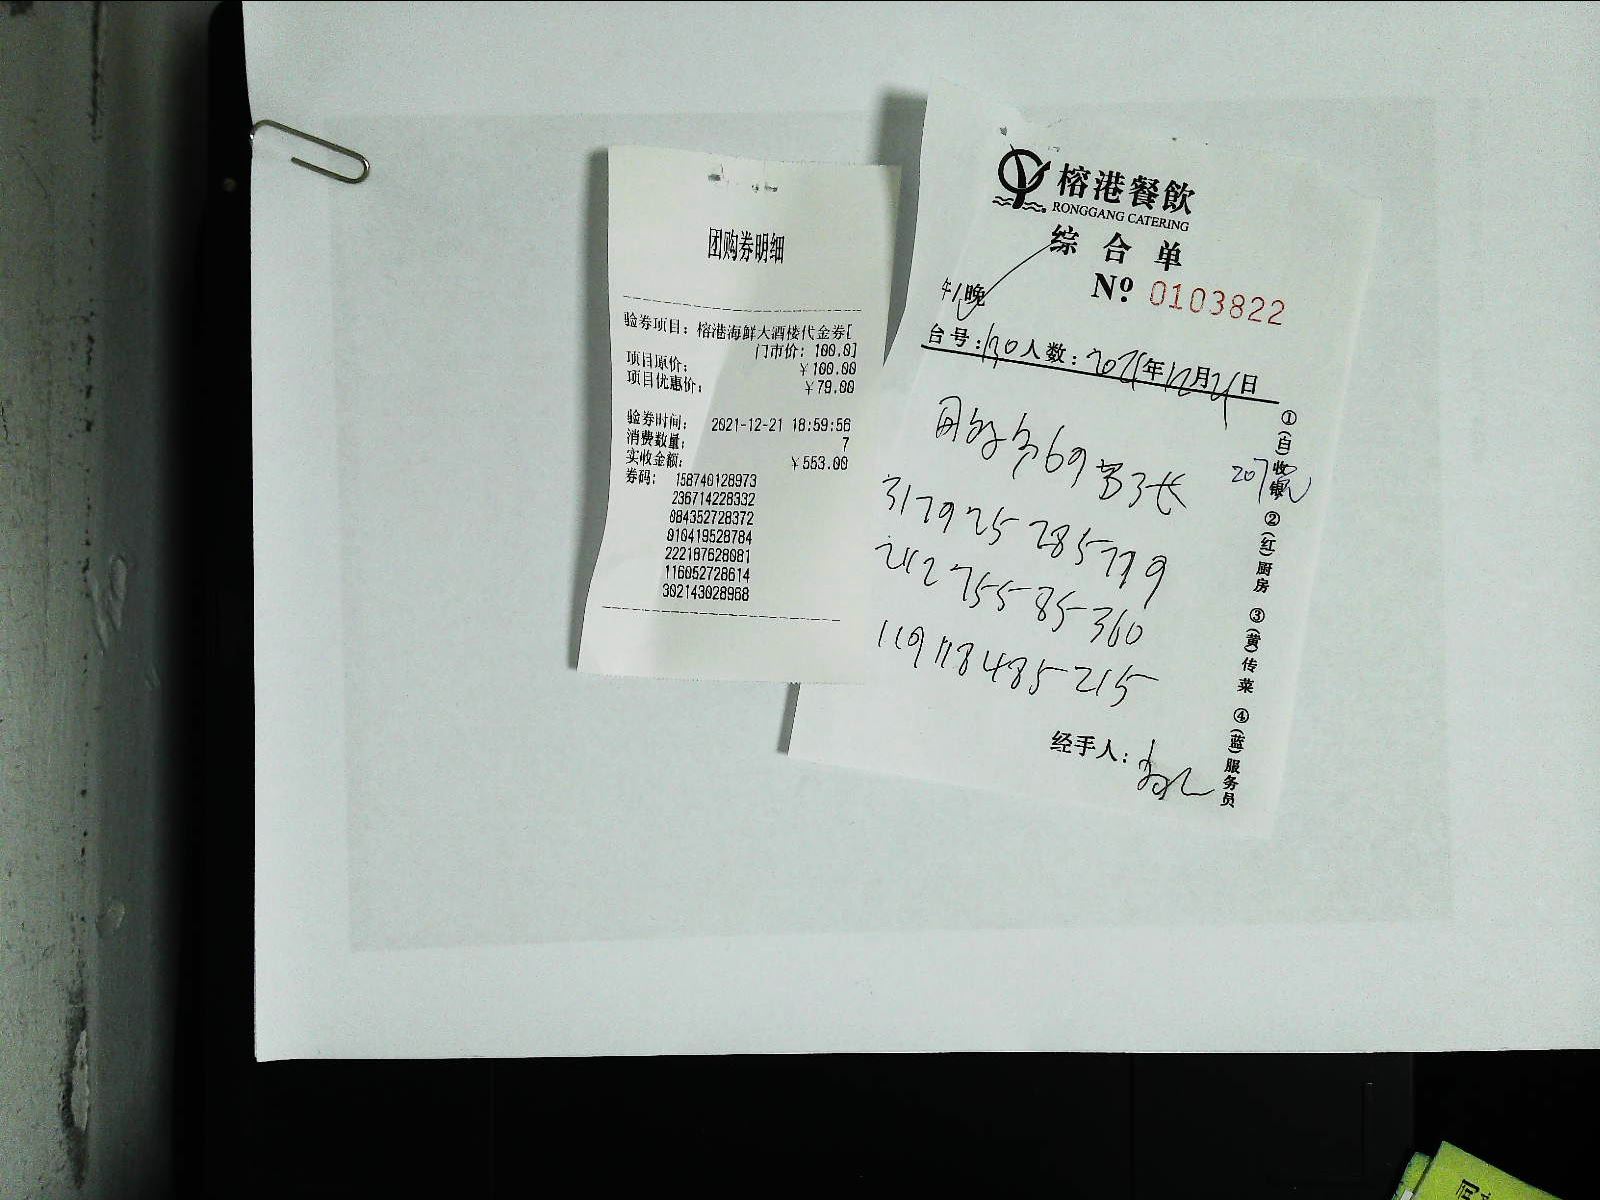 团购券明细
验券项目：榕港海鲜大酒楼代金券[
门市价：100.0]
项目原价： ￥100.00
项目优惠价： ￥79.00
验券时间： 2021-12-21 18:59:56
消费数量： 7
实收金额： ￥553.00
券码： 158740128973
236714228332
084352728372
010419528784
222187628081
116052728614
302143028968
榕港餐飲
RONGGANG CATERING
综合单
№ 0103822
午 晚
台号：130 人数：2021年12月21日
团购券69 3张
317925285779
21275585360
119118485215
207元
经手人：
①(白)收银 ②(红)厨房 ③(黄)传菜 ④(蓝)服务员